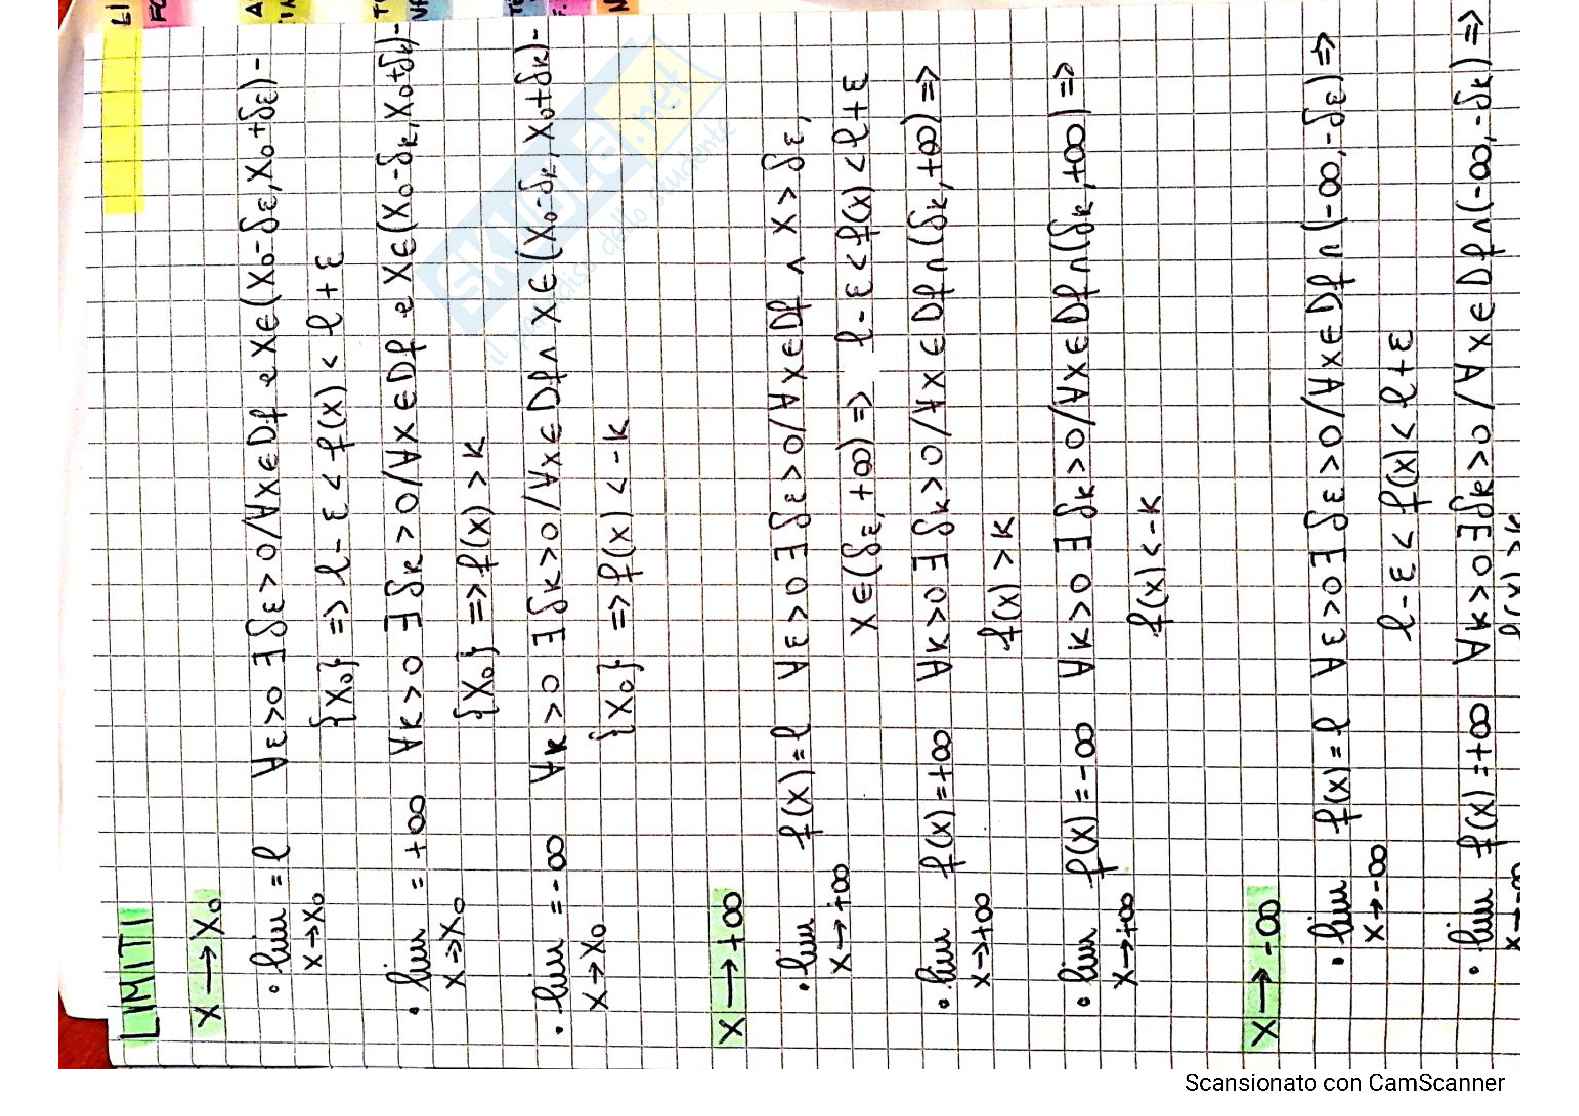 LIMITI
X → X₀
• lim = l   ∀ε>0 ∃ δε>0/∀x∈Df e x∈(x₀-δε, x₀+δε)-
x→x₀   {x₀} => l-ε < f(x) < l+ε
• lim = +∞   ∀k>0 ∃ δk>0/∀x∈Df e x∈(x₀-δk, x₀+δk)-
x→x₀   {x₀} => f(x) > k
• lim = -∞   ∀k>0 ∃ δk>0/∀x∈Df ∧ x∈(x₀-δk, x₀+δk)-
x→x₀   {x₀} => f(x) < -k
X → +∞
• lim f(x) = l   ∀ε>0 ∃ δε>0/∀x∈Df ∧ x>δε,
x→+∞   x∈(δε, +∞) => l-ε < f(x) < l+ε
• lim f(x) = +∞   ∀k>0 ∃ δk>0/∀x∈Df∩(δk, +∞) =>
x→+∞   f(x) > k
• lim f(x) = -∞   ∀k>0 ∃ δk>0/∀x∈Df∩(δk, +∞) =>
x→+∞   f(x) < -k
X → -∞
• lim f(x) = l   ∀ε>0 ∃ δε>0/∀x∈Df∩(-∞, -δε) =>
x→-∞   l-ε < f(x) < l+ε
• lim f(x) = +∞   ∀k>0 ∃ δk>0/∀x∈Df∩(-∞, -δk) =>
x→-∞   f(x) > k
SKUOLA.net
dello studente
Scansionato con CamScanner